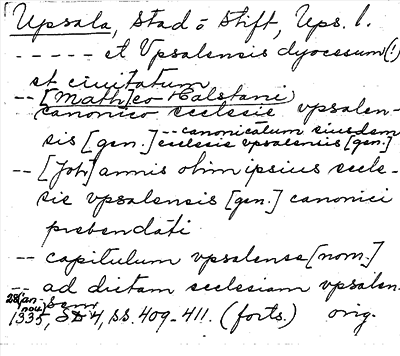 Upsala, stad o stift, Ups. l.
- - - - - et Vpsalensis dyocesum(!)
et ciuitatum
-- [Math]eo Kalstani
canonico ecclesie vpsalen-
sis [gen.] -- canonicatum eiusdem
ecclesie vpsalensis [gen.]
-- [Joh]annis olim ipsius eccle-
sie vpsalensis [gen.] canonici
prebendati
-- capitulum vpsalense [nom.]
-- ad dictam ecclesiam vpsalen-
sem
1335, SD 4, ss. 409-411. (forts.) orig.